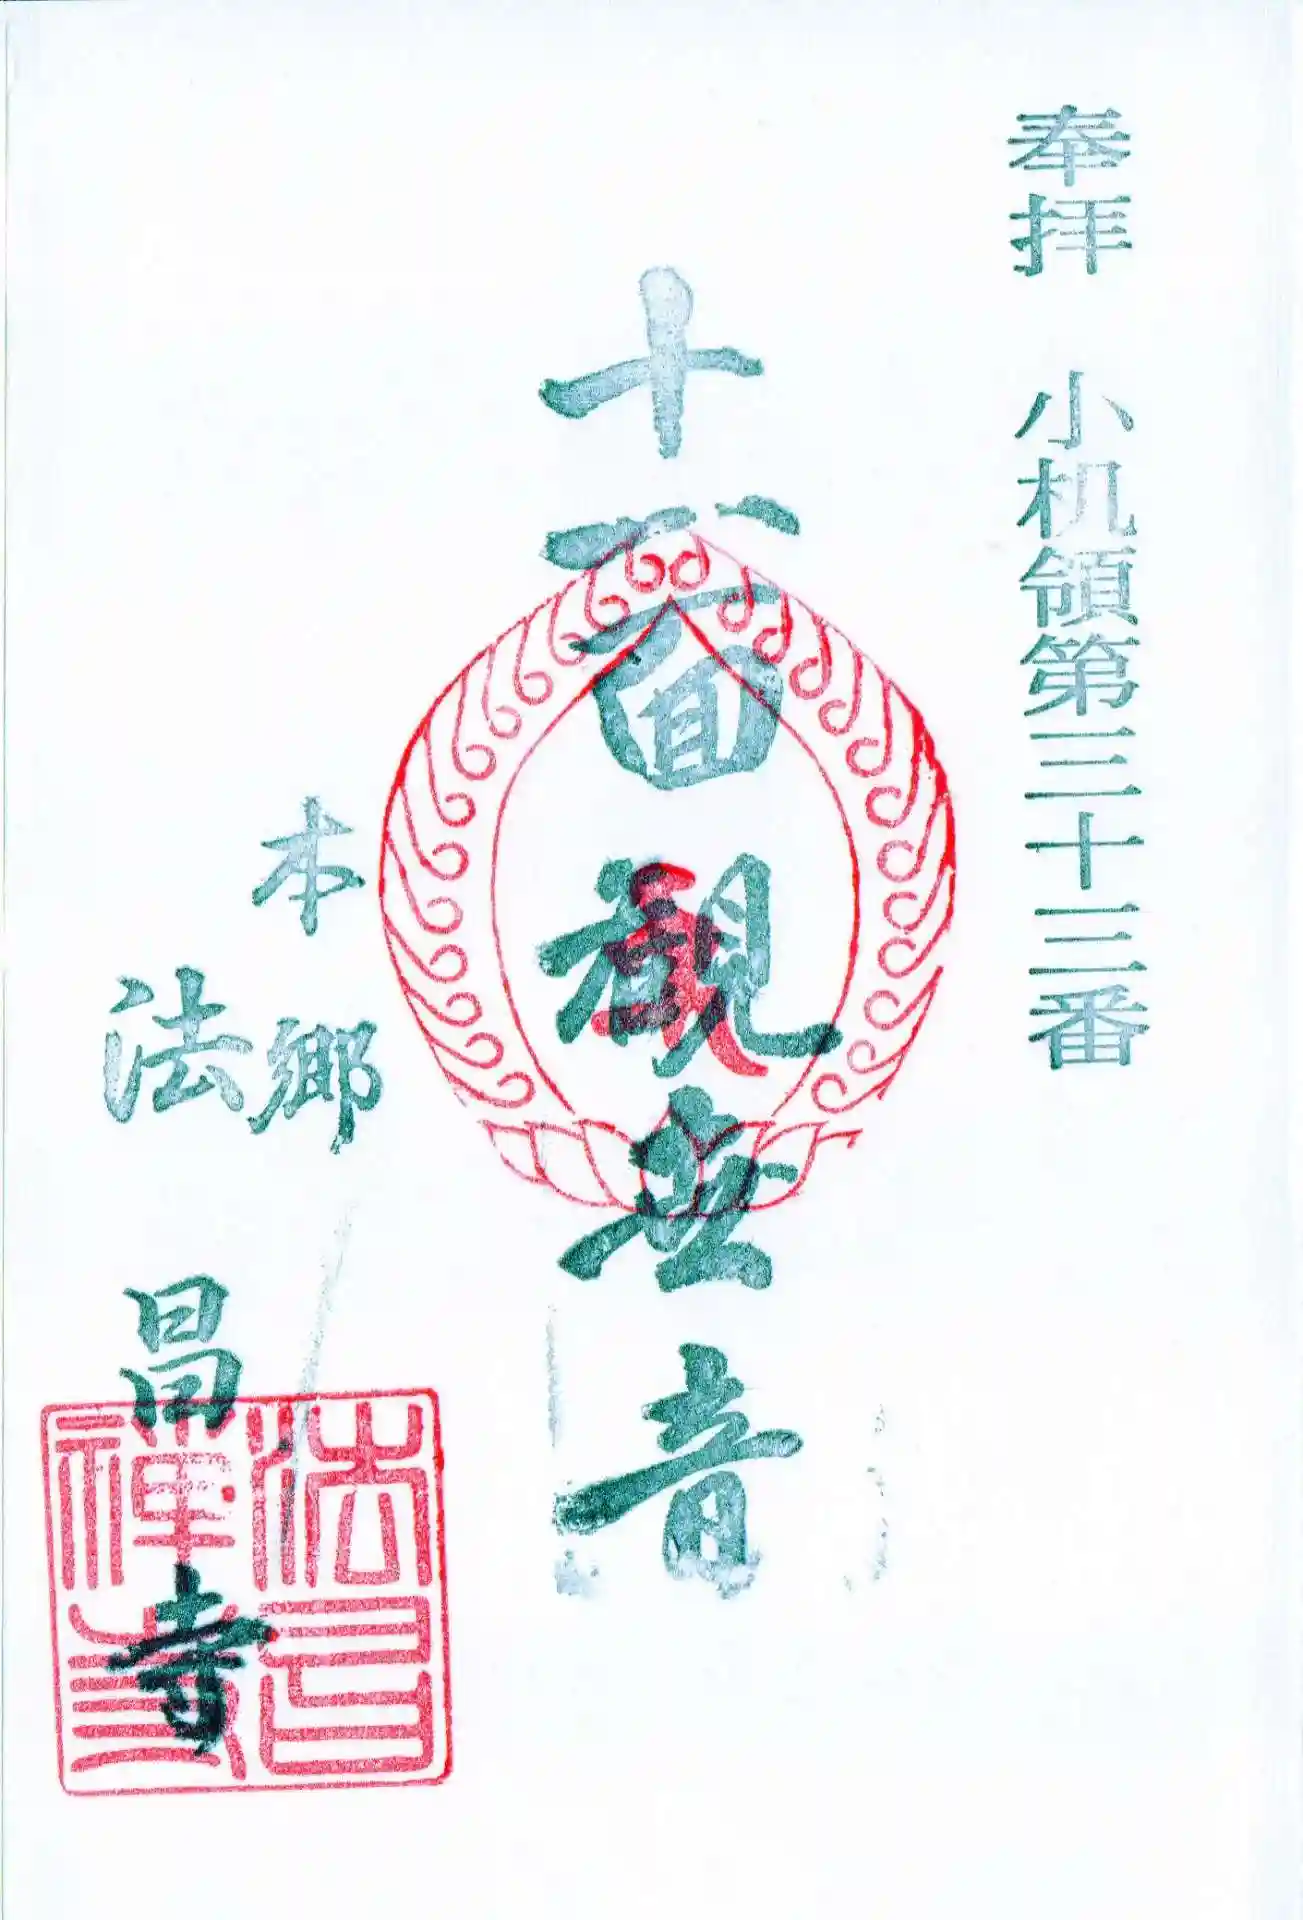 奉拝 小机領第三十三番
十一面観世音
本郷
法昌寺
法昌禅寺